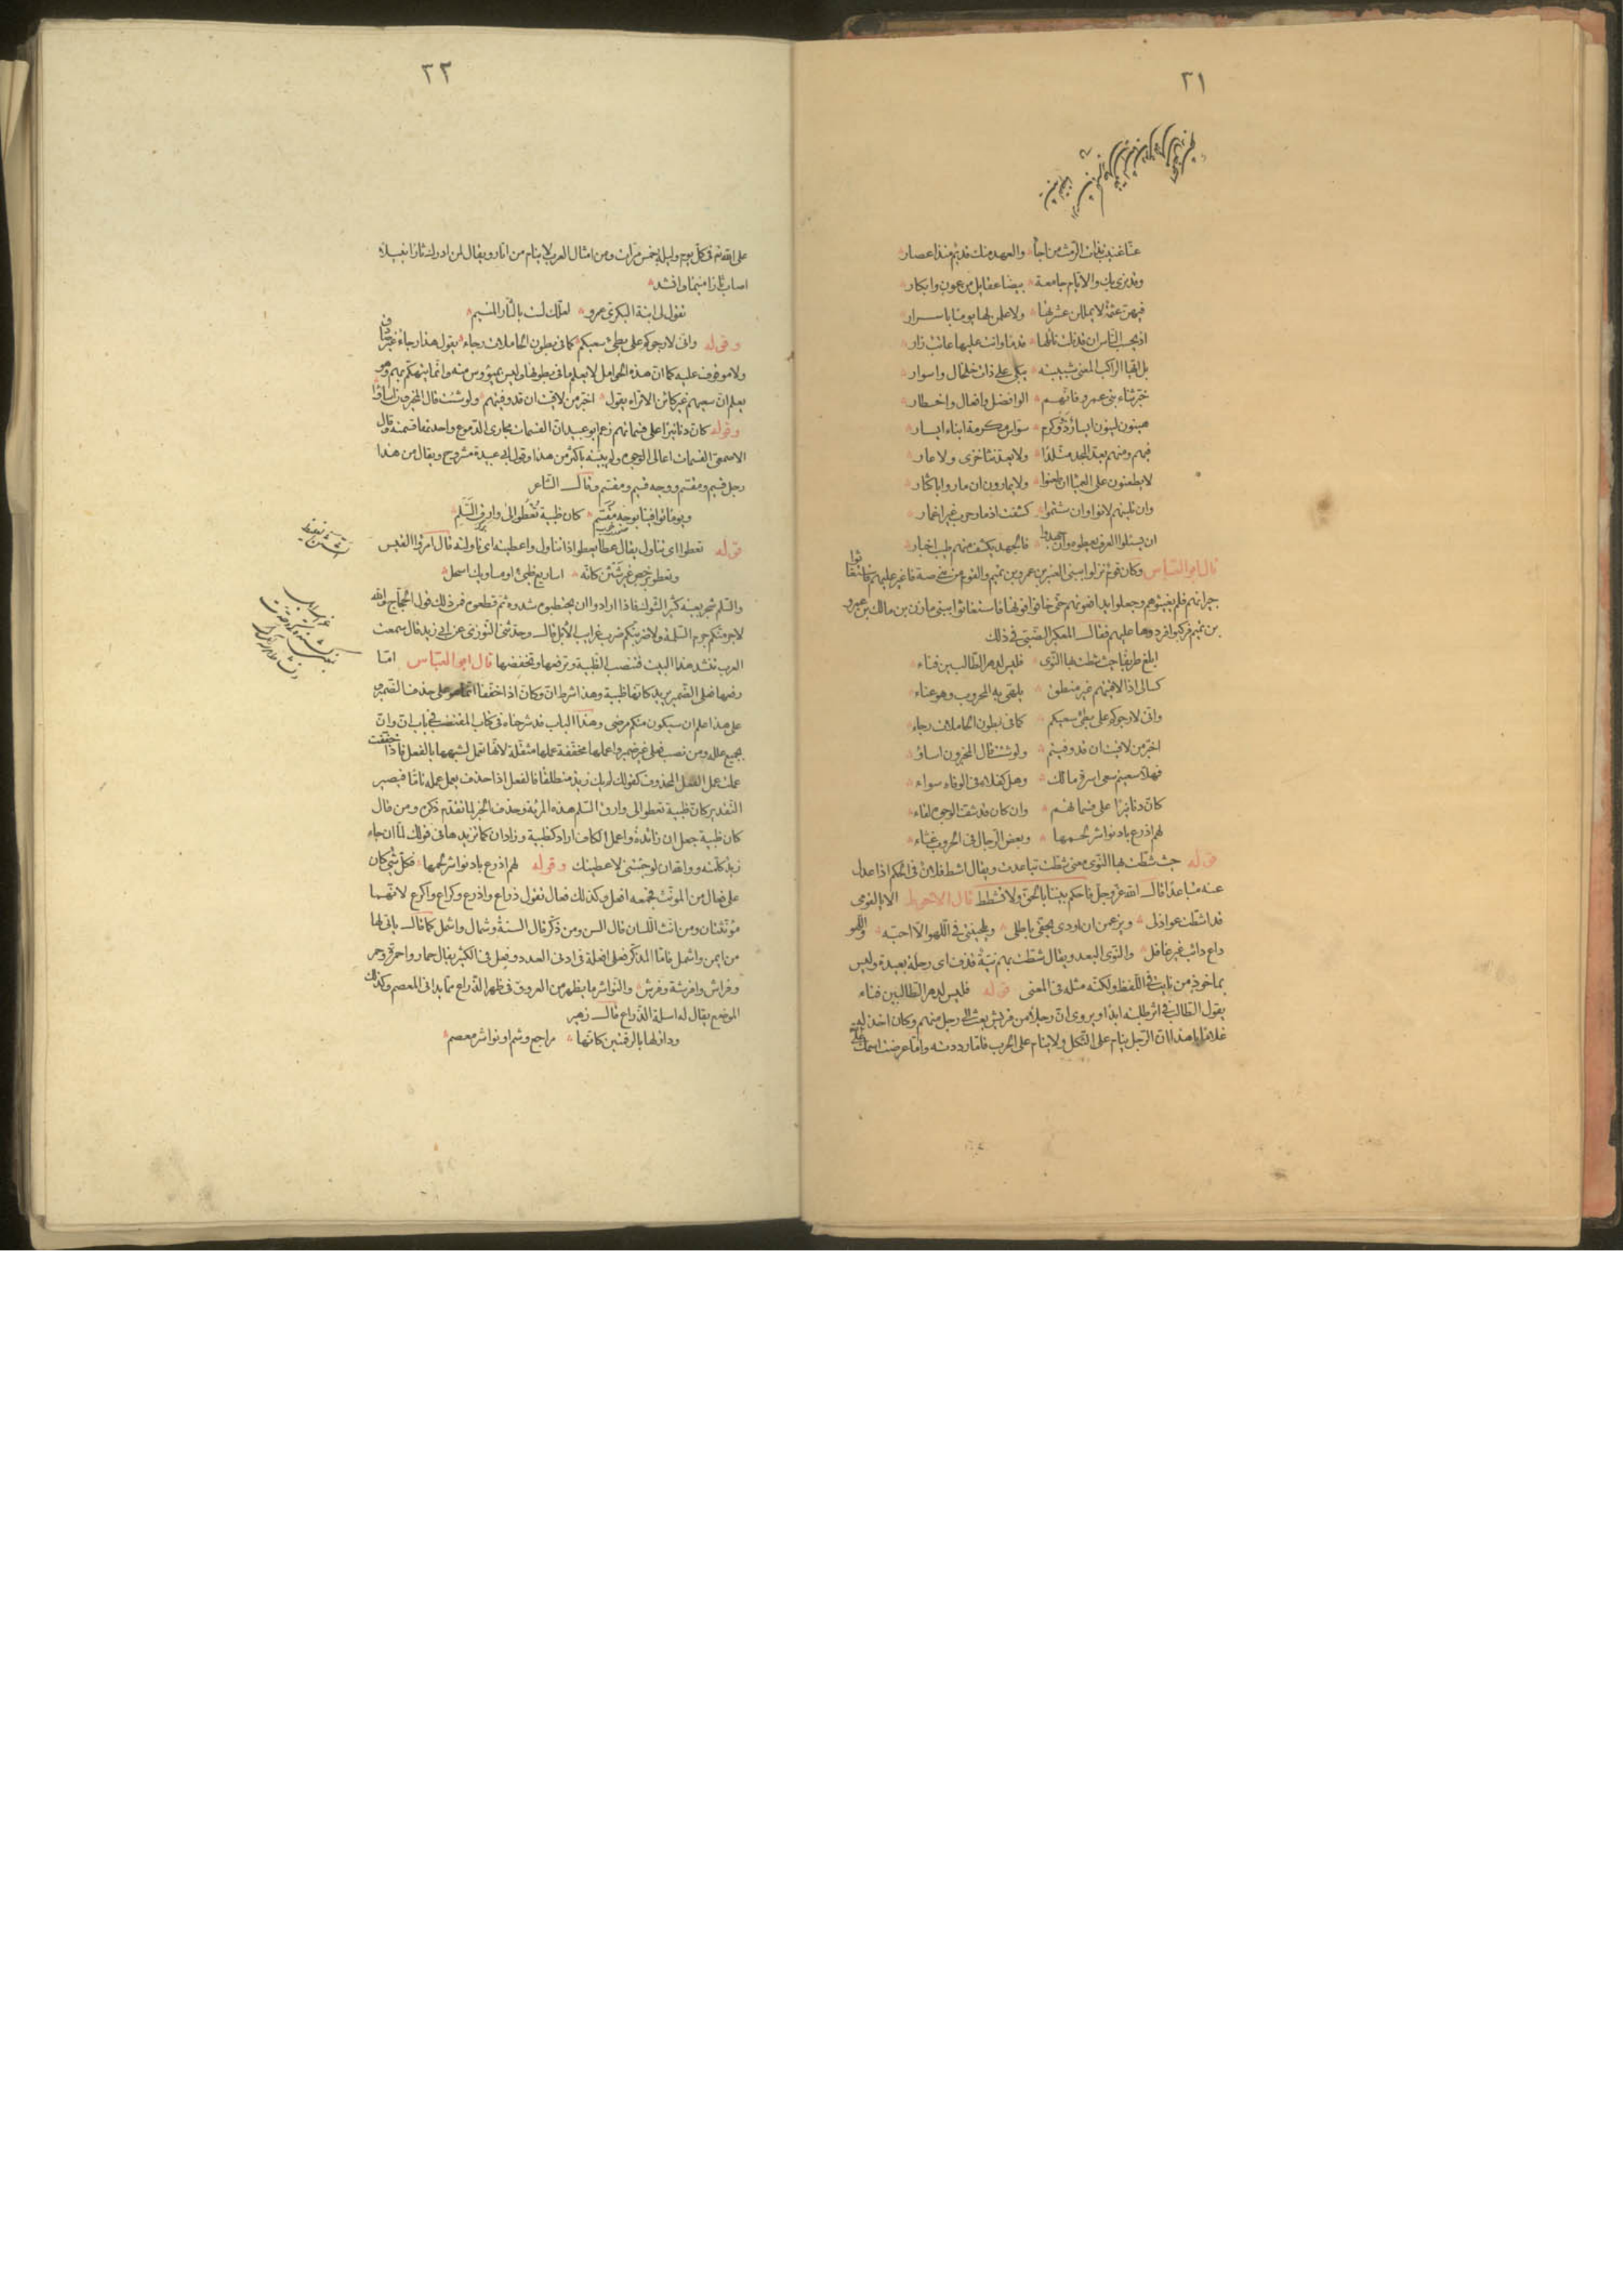 ٢١
وقد يرى بك والايام جامعة بيضا عقايل من عون وابكار
فيهن عثمة لا يمللن عشرتها ولا علمن لها يوما باسرار
اذ يحسب الناس ان قد نلت نائلها قدما وانت عليها عاتب زار
بل ايها الراكب المفنى شبيبته يبكى على ذات خلخال واسوار
خبر ثناء بنى عمرو فانهم الوا فضل وافضال واخطار
هينون لينون ايسار ذو وكرم سواس مكرمة ابناء ايسار
فيهم ومنهم يعد المجد متلدا ولا يعد نثا خزى ولا عار
لا يظعنون على العمياء ان ظعنوا ولا يمارون ان ماروا باكثار
وان تلينتهم لانوا وان شتموا كشفت اذمار حرب غير اغمار
ان يسئلوا العرف يعطوه وان جهدوا فالجهد يكشف منهم طيب اخبار
قال ابو العباس وكان قوم نزلوا ببنى العنبر بن عمرو بن تميم والقوم من بنى ضبة فاغير عليهم فاستغاثوا
جيرانهم فلم يغيثوهم وجعلوا يدافعونهم حتى خافوا فوتها فاستغاثوا ببنى مازن بن مالك بن عمرو
بن تميم فركبوا فردوها عليهم فقال المعكبر الضبى فى ذلك
ابلغ طريفا حيث شطت بها النوى فليس لدهر الطالبين فناء
كسالى اذا لاقيتهم غير منطق يلهى به المحروب وهو عناء
وانى لارجوكم على بطئ سعيكم كما فى بطون الحاملات رجاء
اخبر من لاقيت ان قد وفيتم ولو شئت قال المخبرون اساؤا
فهلا سعيتم سعى اسرة مالك وهل كفلائى فى الوفاء سواء
كان دنانيرا على قسماتهم وان كان قد شف الوجوه لقاء
لهم اذرع باد نواشر لحمها وبعض الرجال فى الحروب غثاء
قوله حيث شطت بها النوى معنى شطت تباعدت ويقال اشط فلان فى الحكم اذا عدل
عنه متباعدا قال الله عز وجل فاحكم بيننا بالحق ولا تشطط قال الاحوص الا يا لقومى
قد اشطت عواذلى ويزعمن ان اودى بحقى باطلى ويلحيننى فى اللهو الا احبه وللهو
داع دائب غير غافل والنوى البعد ويقال شطت بهم نية قذف اى رحلة بعيدة وليس
بماخوذ من نايت فى اللفظ ولكنه مثله فى المعنى قوله فليس لدهر الطالبين فناء
يقول الطالب فى اثر طلبته ابدا ويروى ان رجلا من قريش بعث الى رجل منهم وكان اخذ له
غلاما يا هذا ان الرجل ينام على الثكل ولا ينام على الحرب فاما رددته واما عرضت اسمك
٢٢
على الله تع فى كل يوم وليلة خمس مرات ومن امثال العرب لا ينام من اثار ويقال لمن ادرك ثارا نبيلا
اصاب ثارا منيما وانشد
تقول لى ابنة البكرى عمرو لعلك لست بالثار المنيم
وقوله وانى لارجوكم على بطئ سعيكم كما فى بطون الحاملات رجاء يقول هذا رجاء غير صادق
ولا موقوف عليه كما ان هذه الحوامل لا يعلم ما فى بطونها وليس بميؤوس منه وانما يتهكم بهم وهو
يعلم ان سعيهم غير كائن الا تراه يقول اخبر من لاقيت ان قد وفيتم ولو شئت قال المخبرون اساؤا
وقوله كان دنانيرا على قسماتهم زعم ابو عبيد ان القسمات مجارى الدموع واحدتها قسمة وقال
الاصمعى القسمات اعالى الوجوه ولم يبينه باكثر من هذا وقول ابى عبيدة مشروح ويقال من هذا
رجل قسيم ومقسم ووجه قسيم ومقسم وقال الشاعر
ويوما توافينا بوجه مقسم كان ظبية تعطوا الى وارق السلم
قوله تعطوا اى تناول يقال عطا يعطو اذا تناول واعطيته اى ناولته قال امرؤ القيس
وتعطو برخص غير شثن كانه اساريع ظبى او مساويك اسحل
والسلم شجر بعينه كثير الشوك فاذا ارادوا ان يحتطبوه شدوه ثم قطعوه فمن ذلك قول الحجاج والله
لاحزمنكم حزم السلمة ولاضربنكم ضرب غرايب الابل قال وحدثنى التوزى عن ابى زيد قال سمعت
العرب تنشد هذا البيت فتنصب الظبية وترفعها وتخفضها قال ابو العباس اما
رفعها فعلى الضمير يريد كانها ظبية وهذا شرط ان وكان اذا خففتا انما هو على حذف الضمير
على هذا علم ان سيكون منكم مرضى وهذا الباب قد شرحناه فى كتاب المقتضب فى باب ان وان
بجميع علله ومن نصب فعلى غير ضمير واعملها مخففة عملها مثقلة لانها تعمل لشبهها بالفعل فاذا خففت
عملت عمل الفعل المحذوف كقولك لم يك زيد منطلقا فالفعل اذا حذف يعمل عمله تاما فيصير
التقدير كان ظبية تعطو الى وارق السلم هذه المرية وحذف الخبر لما تقدم ذكره ومن قال
كان ظبية جعل ان زائدة واعمل الكاف اراد كظبية وزاد ان كما تزيدها فى قولك لما ان جاء
زيد كلمته ووالله ان لو جئتنى لاعطيتك وقوله لهم اذرع باد نواشر لحمها فكل شئ كان
على فعال من المونث فجمعه افعل وكذلك فعال تقول ذراع واذرع وكراع واكرع لانهما
مؤنثتان ومن انث اللسان قال السن ومن ذكر قال السنة وشمال واشمل كما قال ياتى لها
من ايمن واشمل فاما المذكر فعلى افعلة فى ادنى العدد وفعل فى الكثير يقال حمار واحمرة وحمر
وفراش وافرشة وفرش والنواشر ما يظهر من العروق فى ظهر الذراع مما يدانى المعصم وكذلك
الموضع يقال له اسلة الذراع قال زهير
ودار لها بالرقمتين كانها مراجع وشم او نواشر معصم